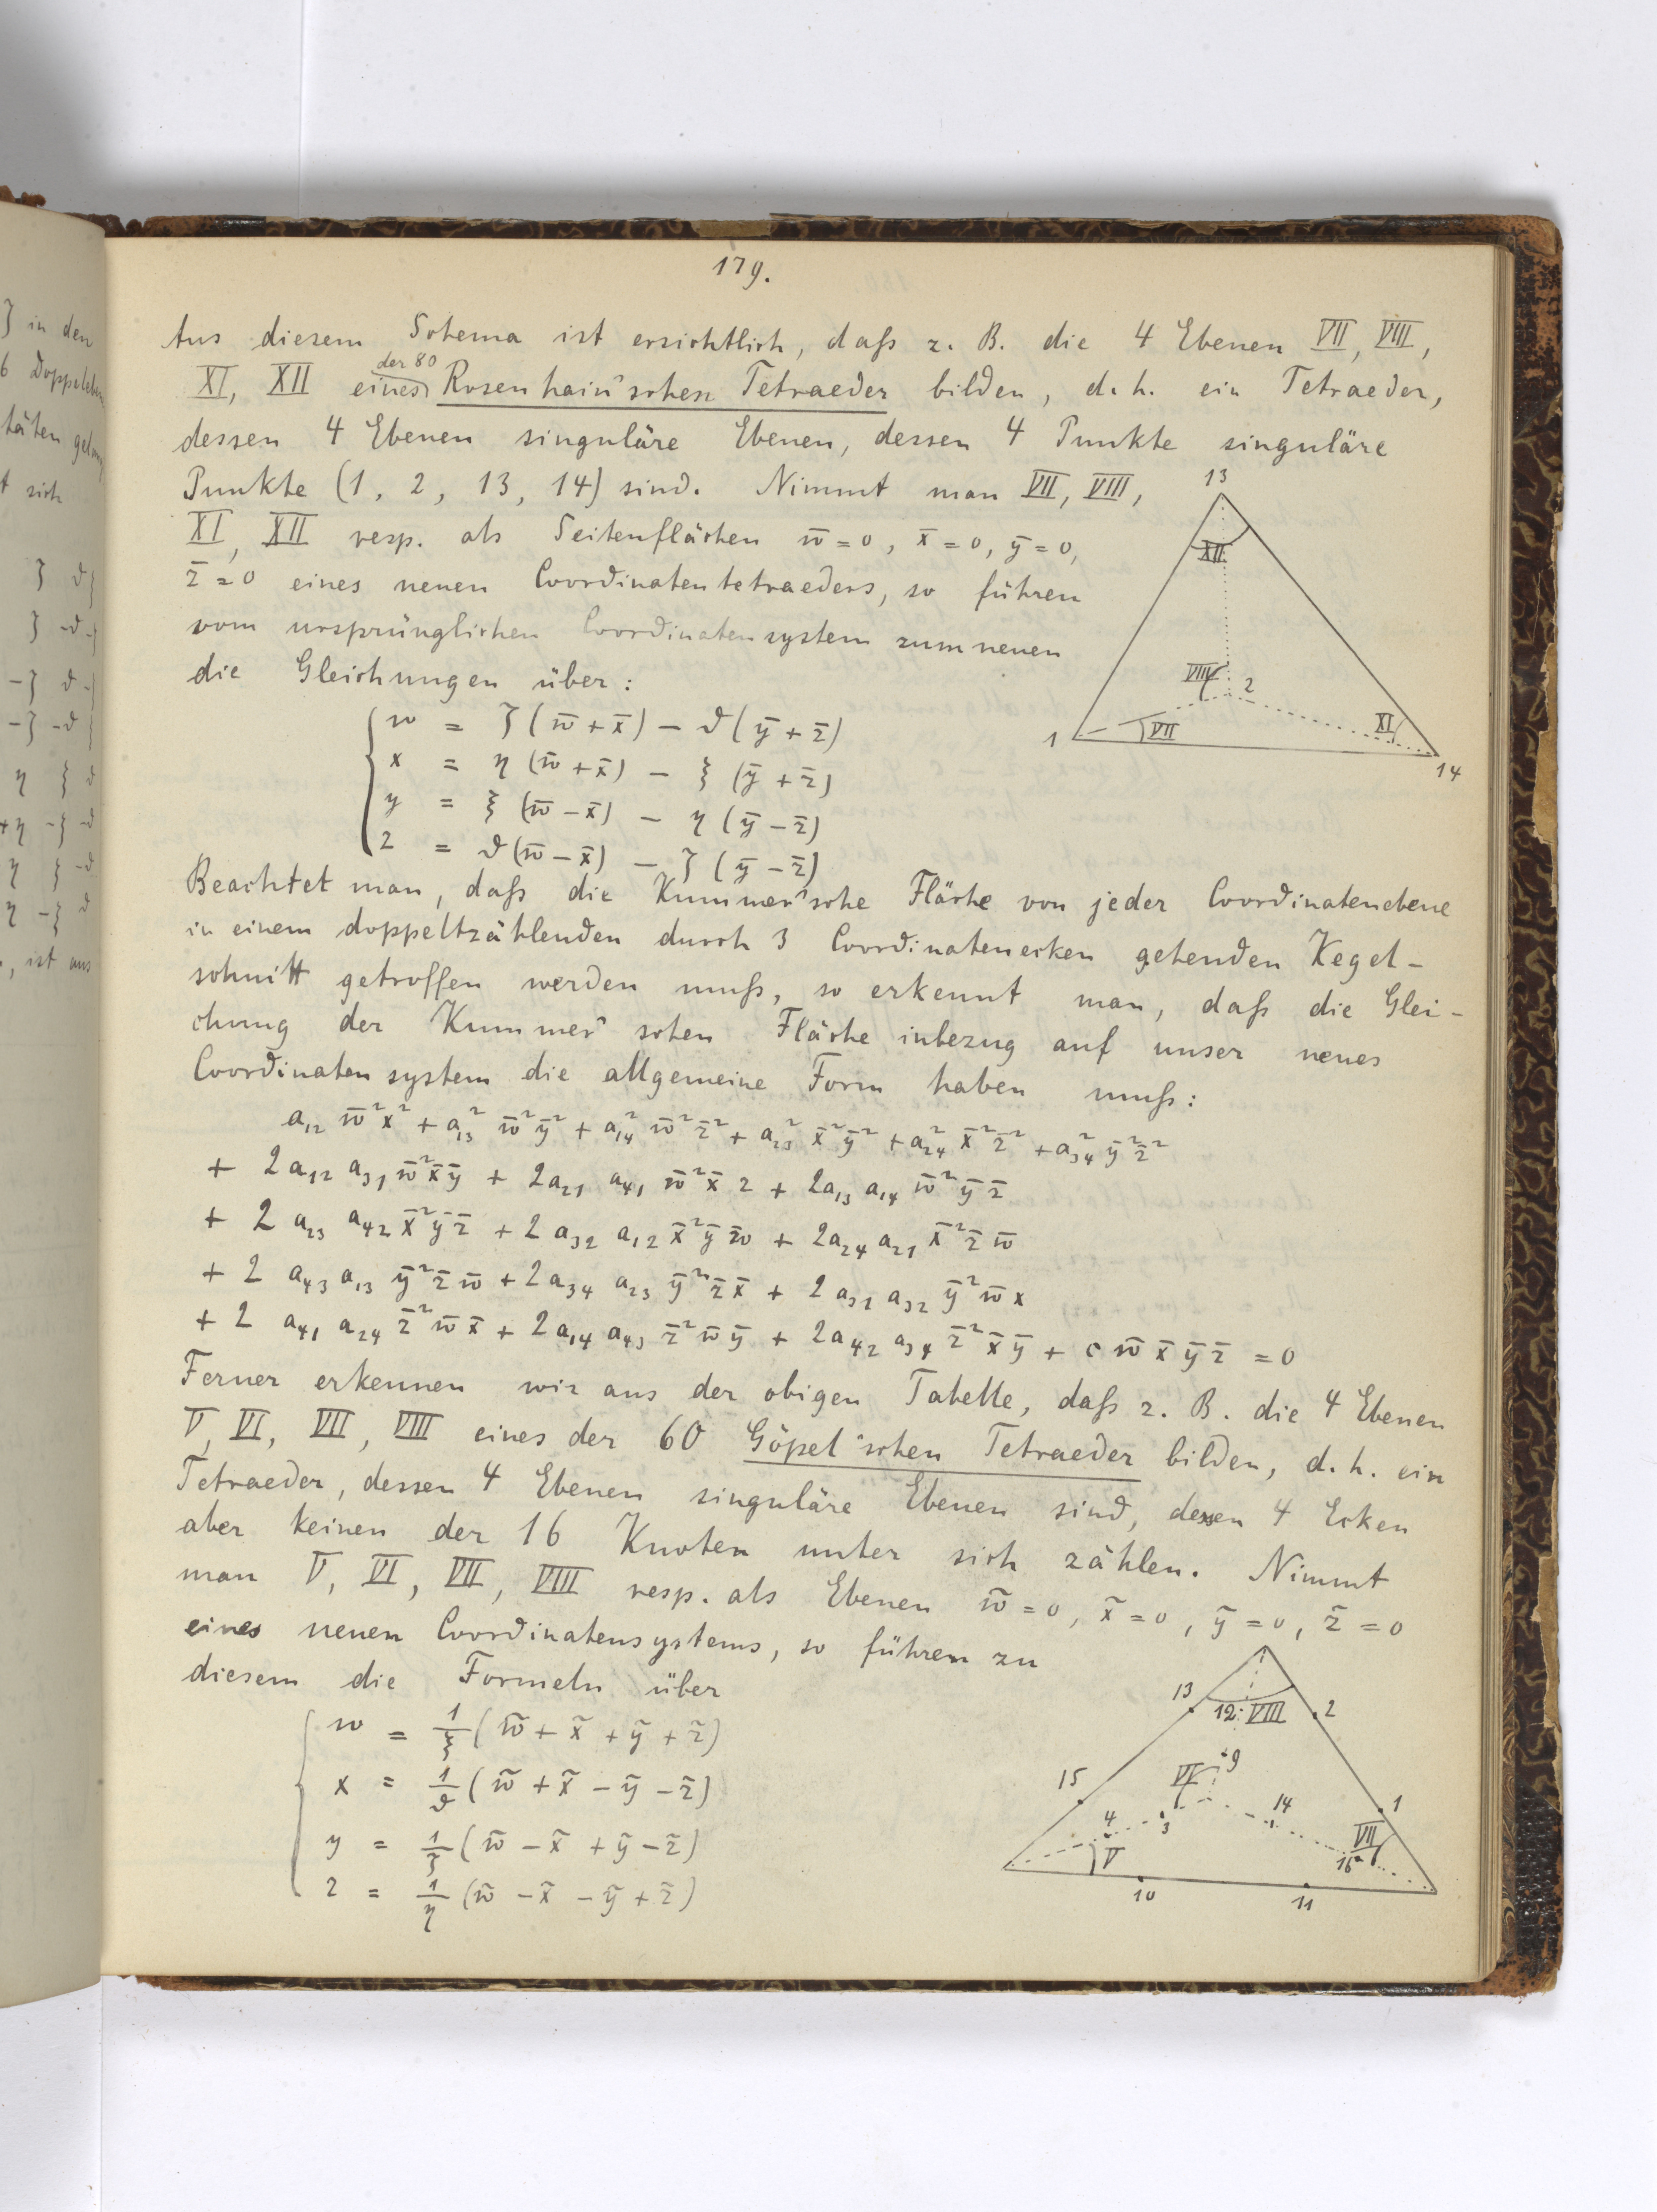 179.
Aus diesem Schema ist ersichtlich, daß z. B. die 4 Ebenen VII, VIII,
XI, XII eines der 80 Rosenhain'schen Tetraeder bilden, d. h. ein Tetraeder,
dessen 4 Ebenen singuläre Ebenen, dessen 4 Punkte singuläre
Punkte (1, 2, 13, 14) sind. Nimmt man VII, VIII,
XI, XII resp. als Seitenflächen w̄ = 0, x̄ = 0, ȳ = 0,
z̄ = 0 eines neuen Coordinatentetraeders, so führen
vom ursprünglichen Coordinatensystem zum neuen
die Gleichungen über:
w = ζ(w̄ + x̄) − ϑ(ȳ + z̄)
x = η(w̄ + x̄) − ξ(ȳ + z̄)
y = ξ(w̄ − x̄) − η(ȳ − z̄)
z = ϑ(w̄ − x̄) − ζ(ȳ − z̄)
13
XII
VIII
2
1
VII
XI
14
Beachtet man, daß die Kummer'sche Fläche von jeder Coordinatenebene
in einem doppeltzählenden durch 3 Coordinatenecken gehenden Kegel-
schnitt getroffen werden muß, so erkennt man, daß die Glei-
chung der Kummer'schen Fläche inbezug auf unser neues
Coordinatensystem die allgemeine Form haben muß:
a₁₂ w̄²x² + a₁₃² w̄²ȳ² + a₁₄² w̄²z̄² + a₂₃² x̄²ȳ² + a₂₄² x̄²z̄² + a₃₄² ȳ²z̄²
+ 2a₁₂ a₃₁ w̄²x̄ȳ + 2a₂₁ a₄₁ w̄²x̄ z + 2a₁₃ a₁₄ w̄²ȳz̄
+ 2 a₂₃ a₄₂ x̄²ȳz̄ + 2 a₃₂ a₁₂ x̄²ȳw̄ + 2a₂₄ a₂₁ x̄²z̄w̄
+ 2 a₄₃ a₁₃ ȳ²z̄w̄ + 2 a₃₄ a₂₃ ȳ²z̄x̄ + 2 a₃₁ a₃₂ ȳ²w̄x
+ 2 a₄₁ a₂₄ z̄²w̄x̄ + 2a₁₄ a₄₃ z̄²w̄ȳ + 2a₄₂ a₃₄ z̄²x̄ȳ + c w̄x̄ȳz̄ = 0
Ferner erkennen wir aus der obigen Tabelle, daß z. B. die 4 Ebenen
V, VI, VII, VIII eines der 60 Göpel'schen Tetraeder bilden, d. h. ein
Tetraeder, dessen 4 Ebenen singuläre Ebenen sind, dessen 4 Ecken
aber keinen der 16 Knoten unter sich zählen. Nimmt
man V, VI, VII, VIII resp. als Ebenen w̃ = 0, x̃ = 0, ỹ = 0, z̃ = 0
eines neuen Coordinatensystems, so führen zu
diesem die Formeln über
w = 1/ξ (w̃ + x̃ + ỹ + z̃)
x = 1/ϑ (w̃ + x̃ − ỹ − z̃)
y = 1/ζ (w̃ − x̃ + ỹ − z̃)
z = 1/η (w̃ − x̃ − ỹ + z̃)
13
12
VIII
2
VI
9
15
4
3
14
1
VII
V
16
10
11